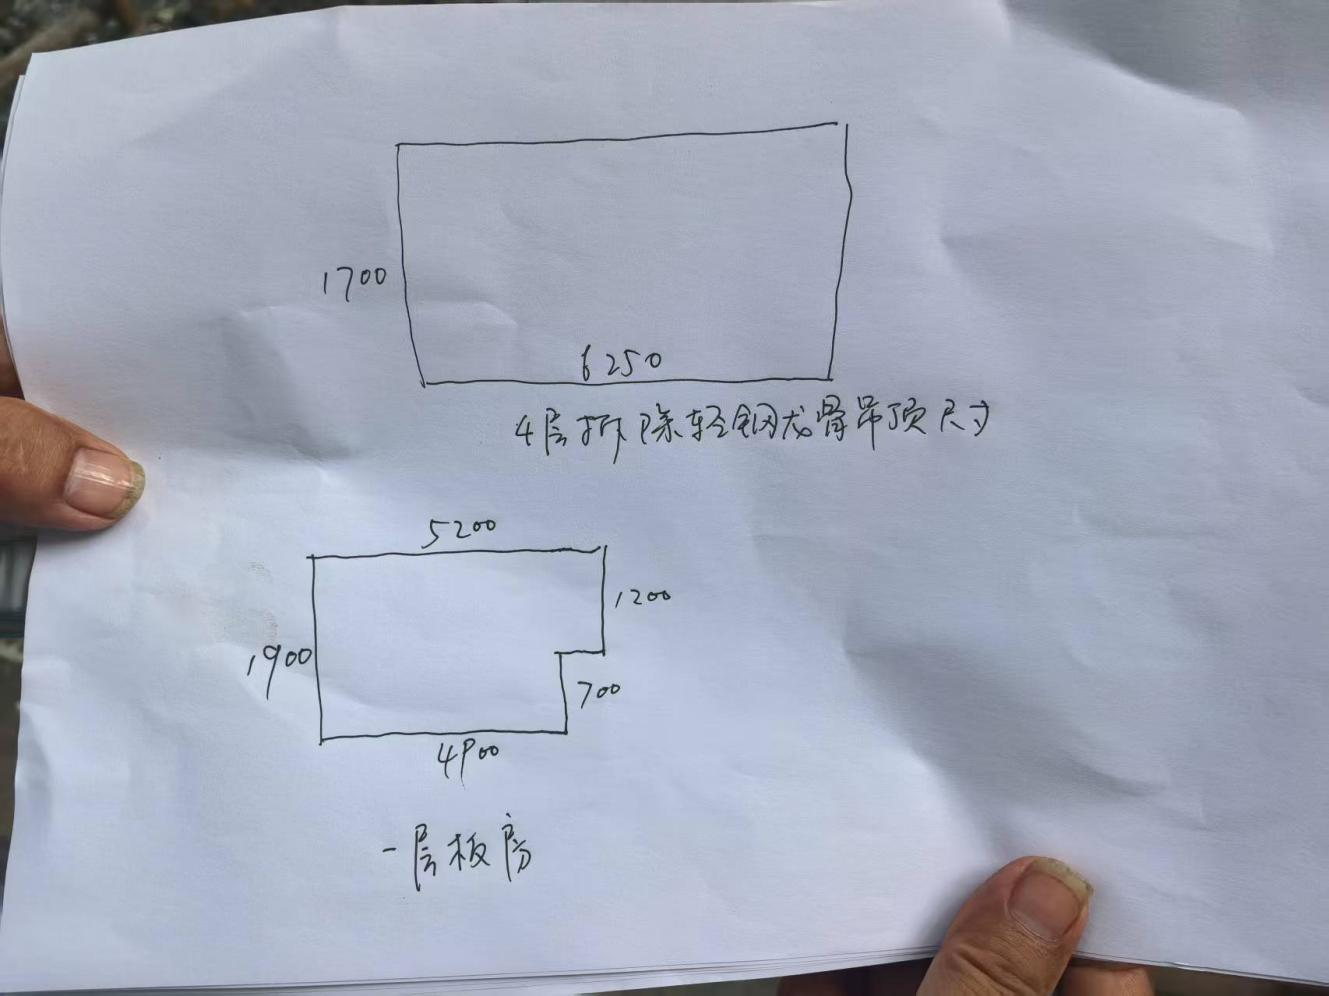 1700
6250
4层拆除轻钢龙骨吊顶尺寸
5200
1200
1900
700
4900
一层板房